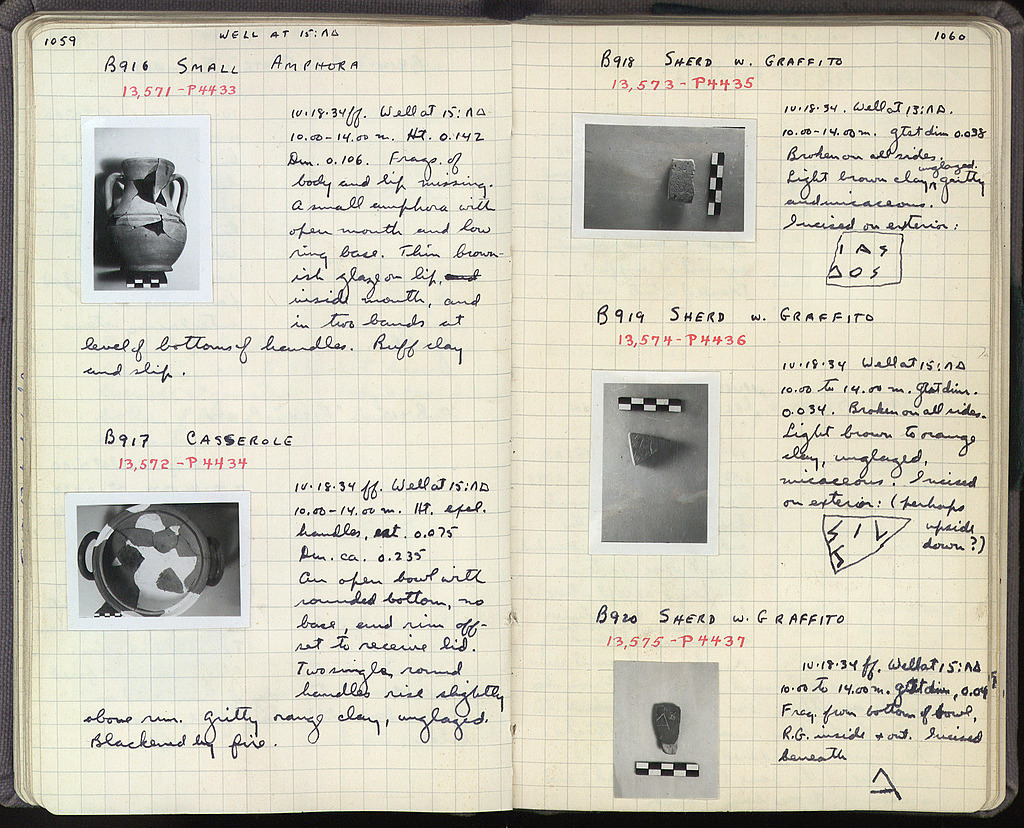 1059
WELL AT 15:ΛΔ
B916 SMALL AMPHORA
13,571-P4433
IV.18.34ff. Well at 15:ΛΔ
10.00-14.00 m. Ht. 0.142
Dm. 0.106. Frags. of
body and lip missing.
A small amphora with
open mouth and low
ring base. Thin brown-
ish glaze on lip,
inside mouth, and
in two bands at
level of bottoms of handles. Buff clay
and slip.
B917 CASSEROLE
13,572-P4434
IV.18.34 ff. Well at 15:ΛΔ
10.00-14.00 m. Ht. excl.
handles, est. 0.075
Dm. ca. 0.235
An open bowl with
rounded bottom, no
base, and rim off-
set to receive lid.
Two single, round
handles rise slightly
above rim. Gritty orange clay, unglazed.
Blackened by fire.
1060
B918 SHERD W. GRAFFITO
13,573-P4435
IV.18.34. Well at 15:ΛΔ.
10.00-14.00 m. gtst dim 0.038
Broken on all sides.
unglazed.
Light brown clay, gritty
and micaceous.
Incised on exterior:
B919 SHERD W. GRAFFITO
13,574-P4436
IV.18.34 Well at 15:ΛΔ
10.00 to 14.00 m. gtst dim.
0.034. Broken on all sides.
Light brown to orange
clay, unglazed,
micaceous. Incised
on exterior: (perhaps
upside
down?)
B920 SHERD W. GRAFFITO
13,575-P4437
IV.18.34 ff. Well at 15:ΛΔ
10.00 to 14.00 m. gtst dim, 0.04
Frag. from bottom of bowl,
R.G. inside + out. Incised
beneath
A